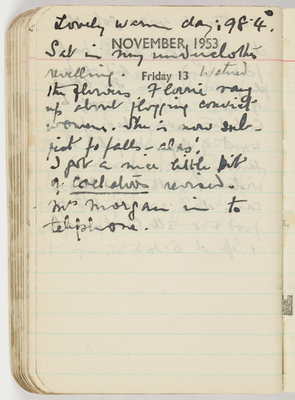 Lovely warm day, 98·4.
Sat in my underclothes
NOVEMBER 1953
revelling.
Friday 13
Watered
the flowers. Florrie rang
up about flogging convict
women. She is now sub-
ject to falls – alas!
I got a nice little bit
of Cockatoos revised.
Mrs Morgan in to
telephone.